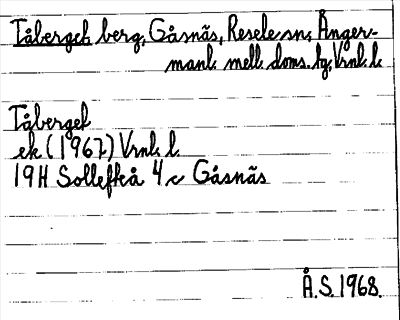 Tåberget, berg, Gåsnäs, Resele sn, Ånger-
manl. mell. doms. tg, Vrnl. l.
Tåberget
ek (1967) Vrnl. l.
19H Sollefteå 4 c Gåsnäs
Å.S. 1968.